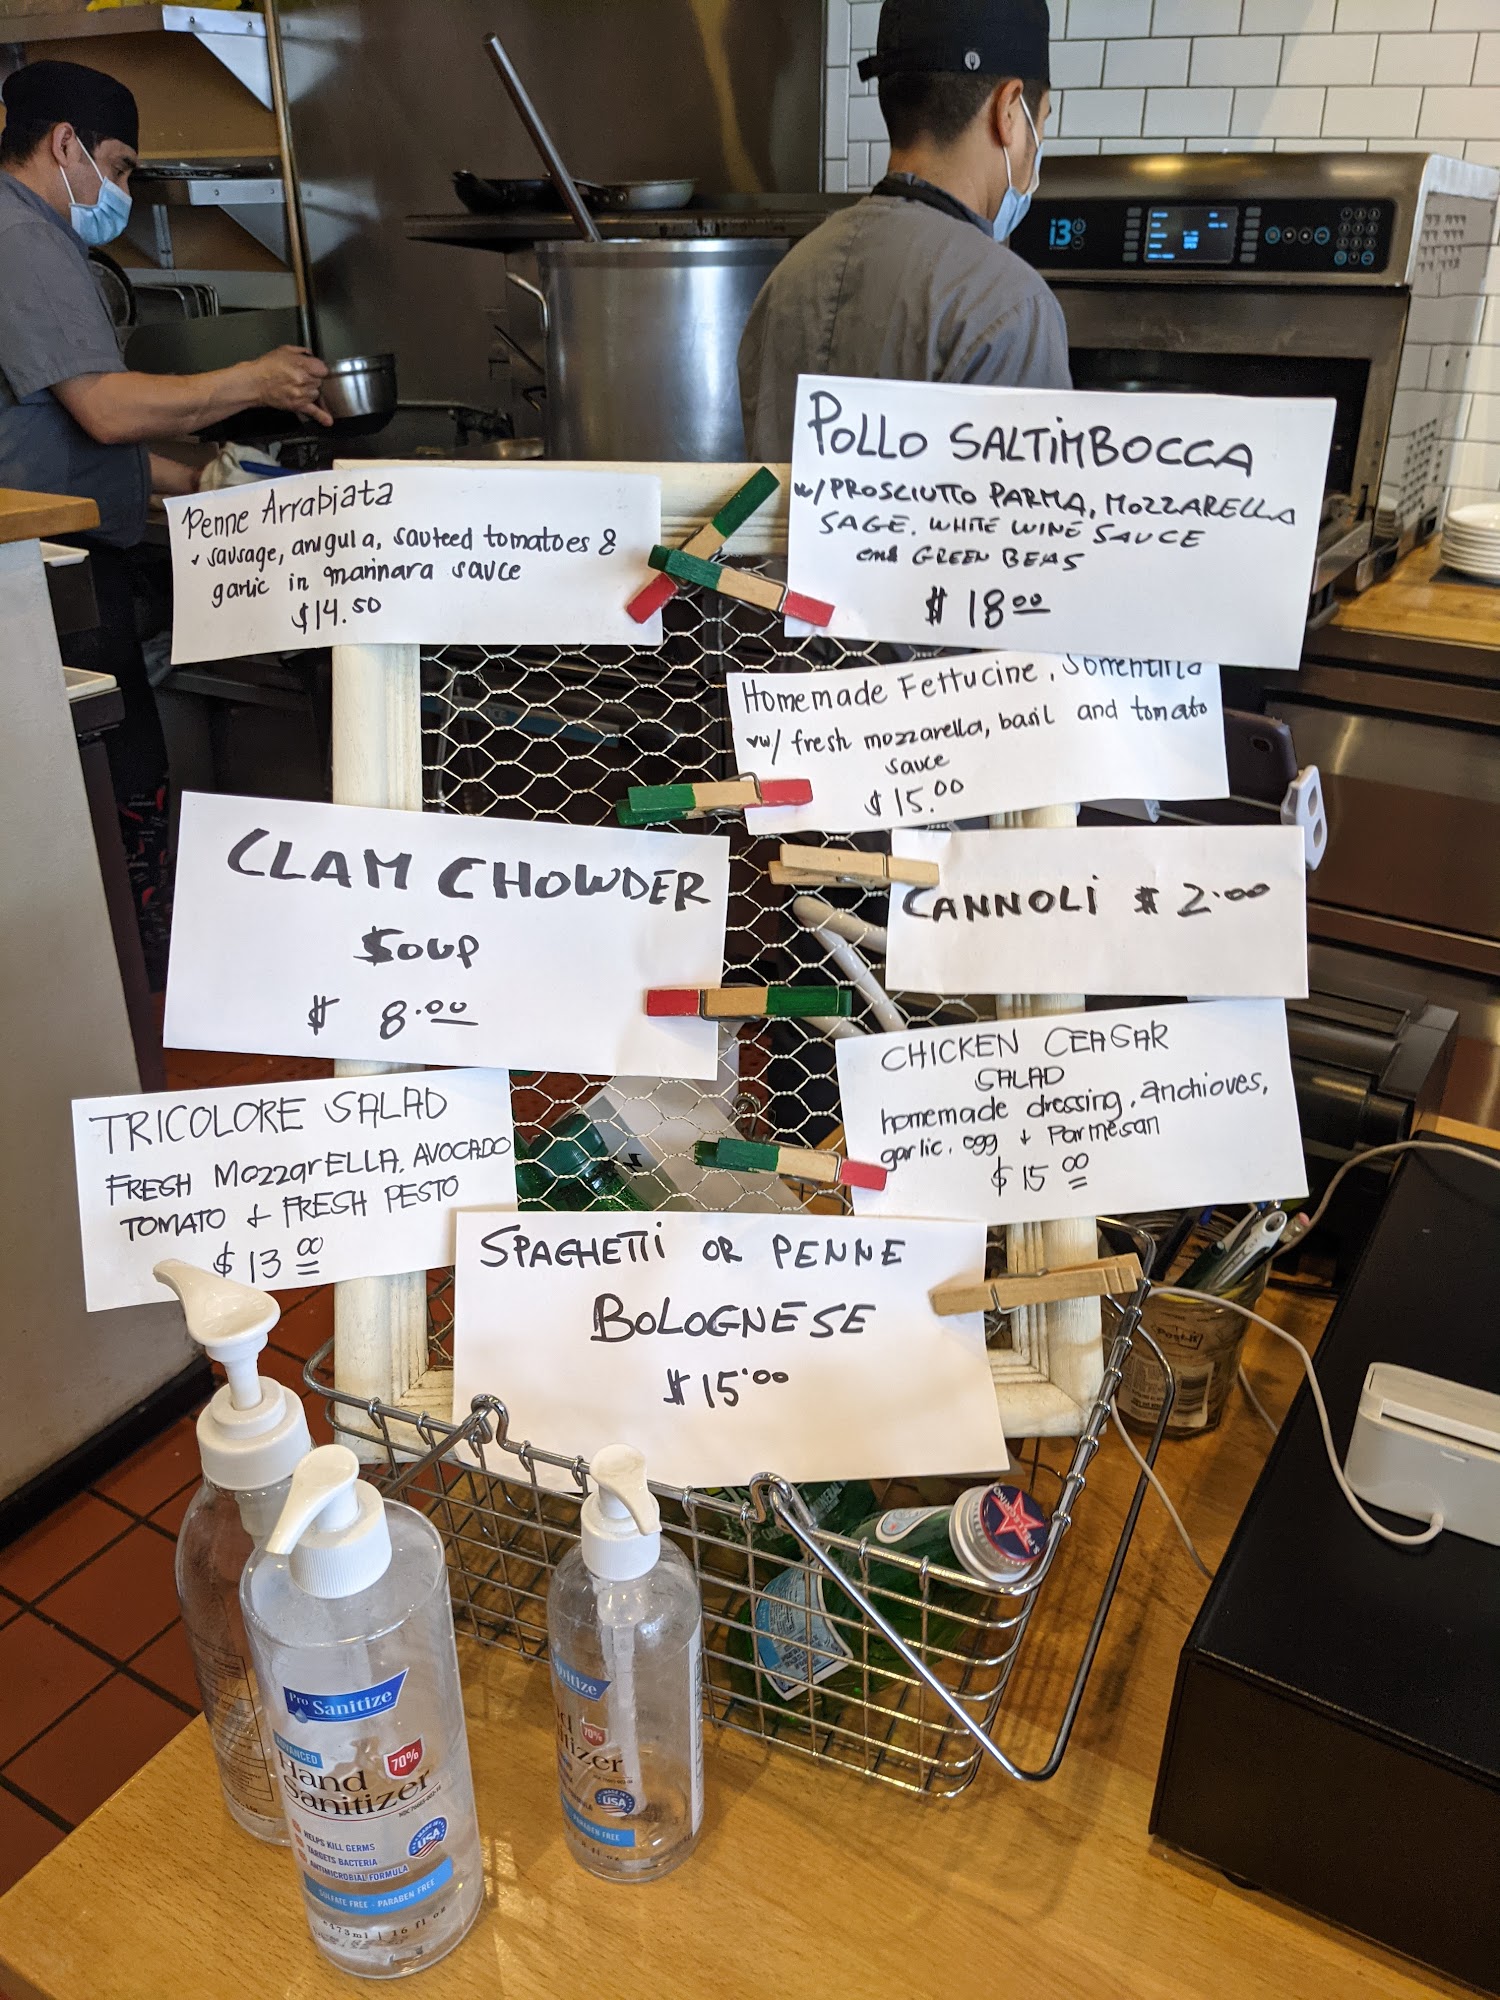 Penne Arrabiata
sausage, arugula, sauteed tomatoes &
garlic in marinara sauce
$14.50
POLLO SALTIMBOCCA
w/PROSCIUTTO PARMA, MOZZARELLA
SAGE, WHITE WINE SAUCE
and GREEN BEAS
$ 18.00
Homemade Fettucine, Sorrentina
w/ fresh mozzarella, basil and tomato
sauce
$15.00
CLAM CHOWDER
SOUP
$ 8.00
CANNOLI $ 2.00
CHICKEN CEASAR
SALAD
homemade dressing, anchioves,
garlic, egg + Parmesan
$15 00
TRICOLORE SALAD
FRESH MOZZArELLA, AVOCADO
TOMATO & FRESH PESTO
$ 13 00
SPAGHETTi OR PENNE
BOLOGNESE
$15.00
i3
Post-it
S.PELLEGRINO
Pro Sanitize
ADVANCED
70%
Hand
Sanitizer
HELPS KILL GERMS
TARGETS BACTERIA
ANTIMICROBIAL FORMULA
USA
SULFATE FREE - PARABEN FREE
473ml | 16 fl oz
70%
USA
PARABEN FREE